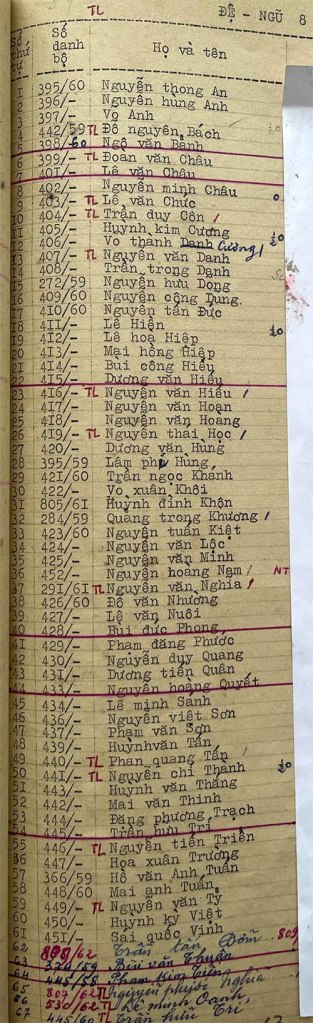 TL ĐỆ - NGŨ 8
Số thứ tự Số danh bộ Họ và tên
1 395/60 Nguyễn thong An
2 396/- Nguyễn hùng Anh
3 397/- Vo Anh
4 442/59 TL Đỗ nguyên Bách
5 398/60 Ngô văn Bành
6 399/- TL Đoàn văn Châu
7 401/- Lê văn Châu
8 402/- Nguyễn minh Châu
9 403/- TL Lê văn Chưc
10 404/- TL Trần duy Côn
11 405/- Huỳnh kim Cương
12 406/- Vo thành Danh Cường
13 407/- TL Nguyễn văn Danh
14 408/- Trần trong Danh
15 272/59 Nguyễn hưu Dong
16 409/60 Nguyễn công Dụng
17 410/60 Nguyễn tấn Đức
18 411/- Lê Hiền
19 412/- Lê hoa Hiệp
20 413/- Mai hồng Hiệp
21 414/- Bui công Hiếu
22 415/- Dương văn Hiếu
23 416/- TL Nguyễn văn Hiếu
24 417/- Nguyễn văn Hoạn
25 418/- Nguyễn văn Hoang
26 419/- TL Nguyễn thái Học
27 420/- Dương văn Hùng
28 395/59 Lâm phu Hùng
29 421/60 Trần ngọc Khánh
30 422/- Vo xuân Khôi
31 805/61 Huỳnh đình Khôn
32 284/59 Quang trong Khương
33 423/60 Nguyễn tuấn Kiệt
34 424/- Nguyễn văn Lộc
35 425/- Nguyễn văn Minh
36 452/- Nguyễn hoàng Nam NT
37 291/61 TL Nguyễn văn Nghia
38 426/60 Đỗ văn Nhương
39 427/- Lê văn Nuôi
40 428/- Bui đức Phong
41 429/- Phạm đăng Phước
42 430/- Nguyễn duy Quang
43 431/- Dương tiến Quân
44 433/- Nguyễn hoàng Quyết
45 434/- Lê minh Sánh
46 436/- Nguyễn việt Sơn
47 437/- Phạm văn Sơn
48 439/- Huỳnhvăn Tấn
49 440/- TL Phan quang Tấn
50 441/- TL Nguyễn chí Thành
51 443/- Huỳnh văn Thắng
52 442/- Mai văn Thinh
53 444/- Đặng phương Trạch
54 445/- Trần hưu Tri
55 446/- TL Nguyễn tiến Triển
56 447/- Họa xuân Trương
57 366/59 Hồ văn Anh Tuấn
58 448/60 Mai anh Tuấn
59 449/- TL Nguyễn văn Tỷ
60 450/- Huỳnh kỳ Việt
61 451/- Sai quốc Vinh
62 Trần tấn 809/
63 370/59 Bùi văn Thuận
64 445/58 Phạm Kim Tiên
65 807/62 TL nguyễn phước nghĩa
66 530/62 TL Kế minh Oanh
67 445/60 TL Trần hữu Trí